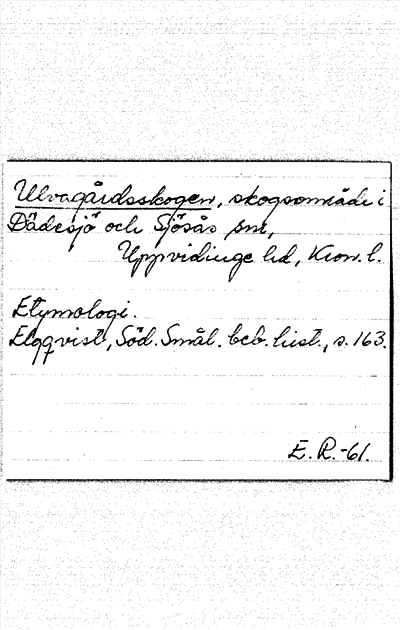 Ulvagårdsskogen, skogsområde i
Dädesjö och Sjösås snr,
Uppvidinge hd, Kron. l.
Etymologi.
Elqqvist, Söd. Smål. beb. hist., s. 163.
E. R.-61.